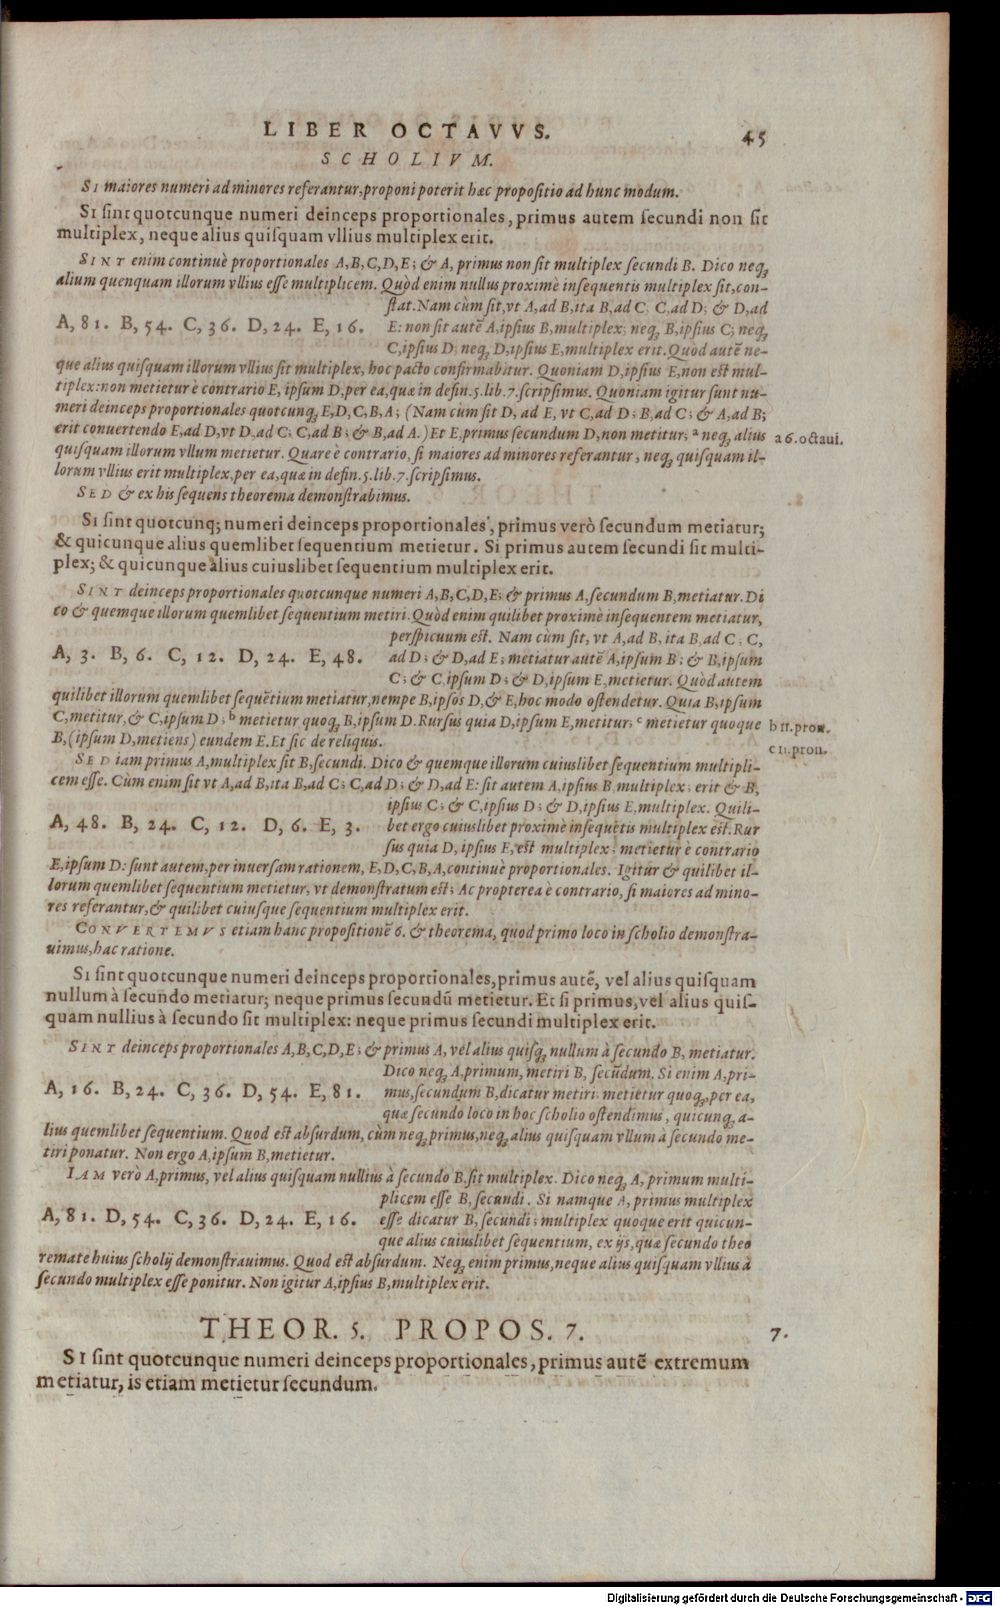 LIBER OCTAVVS. 45
SCHOLIVM.
SI maiores numeri ad minores referantur, proponi poterit hæc propositio ad hunc modum.
SI sint quotcunque numeri deinceps proportionales, primus autem secundi non sit
multiplex, neque alius quisquam vllius multiplex erit.
SINT enim continuè proportionales A, B, C, D, E; & A, primus non sit multiplex secundi B. Dico neq;
alium quenquam illorum vllius esse multiplicem. Quòd enim nullus proximè insequentis multiplex sit, con-
stat. Nam cùm sit, vt A, ad B, ita B, ad C; C, ad D; & D, ad
A, 81. B, 54. C, 36. D, 24. E, 16.
E: non sit autẽ A, ipsius B, multiplex; neq; B, ipsius C; neq;
C, ipsius D; neq; D, ipsius E, multiplex erit. Quod autẽ ne-
que alius quisquam illorum vllius sit multiplex, hoc pacto confirmabitur. Quoniam D, ipsius E, non est mul-
tiplex: non metietur è contrario E, ipsum D, per ea, quæ in defin. 5. lib. 7. scripsimus. Quoniam igitur sunt nu-
meri deinceps proportionales quotcunq; E, D, C, B, A; (Nam cùm sit D, ad E, vt C, ad D; B, ad C; & A, ad B;
erit conuertendo E, ad D, vt D, ad C; C, ad B; & B, ad A.) Et E, primus secundum D, non metitur; ᵃ neq; alius
a 6. octaui.
quisquam illorum vllum metietur. Quare è contrario, si maiores ad minores referantur, neq; quisquam il-
lorum vllius erit multiplex, per ea, quæ in defin. 5. lib. 7. scripsimus.
SED & ex his sequens theorema demonstrabimus.
SI sint quotcunq; numeri deinceps proportionales, primus verò secundum metiatur;
& quicunque alius quemlibet sequentium metietur. Si primus autem secundi sit multi-
plex; & quicunque alius cuiuslibet sequentium multiplex erit.
SINT deinceps proportionales quotcunque numeri A, B, C, D, E; & primus A, secundum B, metiatur. Di
co & quemque illorum quemlibet sequentium metiri. Quòd enim quilibet proximè insequentem metiatur,
perspicuum est. Nam cùm sit, vt A, ad B, ita B, ad C; C,
A, 3. B, 6. C, 12. D, 24. E, 48.
ad D; & D, ad E; metiatur autẽ A, ipsum B; & B, ipsum
C; & C, ipsum D; & D, ipsum E, metietur. Quòd autem
quilibet illorum quemlibet sequẽtium metiatur, nempe B, ipsos D, & E, hoc modo ostendetur. Quia B, ipsum
C, metitur, & C, ipsum D; ᵇ metietur quoq; B, ipsum D. Rursus quia D, ipsum E, metitur; ᶜ metietur quoque
b 11. pron.
B, (ipsum D, metiens) eundem E. Et sic de reliquis.
c 11. pron.
SED iam primus A, multiplex sit B, secundi. Dico & quemque illorum cuiuslibet sequentium multipli-
cem esse. Cùm enim sit vt A, ad B, ita B, ad C; C, ad D; & D, ad E: sit autem A, ipsius B, multiplex; erit & B,
ipsius C; & C, ipsius D; & D, ipsius E, multiplex. Quili-
A, 48. B, 24. C, 12. D, 6. E, 3.
bet ergo cuiuslibet proximè insequẽtis multiplex est. Rur
sus quia D, ipsius E, est multiplex; metietur è contrario
E, ipsum D: sunt autem, per inuersam rationem, E, D, C, B, A, continuè proportionales. Igitur & quilibet il-
lorum quemlibet sequentium metietur, vt demonstratum est; Ac propterea è contrario, si maiores ad mino-
res referantur, & quilibet cuiusque sequentium multiplex erit.
CONVERTEMVS etiam hanc propositionẽ 6. & theorema, quod primo loco in scholio demonstra-
uimus, hac ratione.
SI sint quotcunque numeri deinceps proportionales, primus autẽ, vel alius quisquam
nullum à secundo metiatur; neque primus secundũ metietur. Et si primus, vel alius quis-
quam nullius à secundo sit multiplex: neque primus secundi multiplex erit.
SINT deinceps proportionales A, B, C, D, E; & primus A, vel alius quisq; nullum à secundo B, metiatur.
Dico neq; A, primum, metiri B, secũdum. Si enim A, pri-
A, 16. B, 24. C, 36. D, 54. E, 81.
mus, secundum B, dicatur metiri; metietur quoq; per ea,
quæ secundo loco in hoc scholio ostendimus, quicunq; a-
lius quemlibet sequentium. Quod est absurdum, cùm neq; primus, neq; alius quisquam vllum à secundo me-
tiri ponatur. Non ergo A, ipsum B, metietur.
IAM verò A, primus, vel alius quisquam nullius à secundo B, sit multiplex. Dico neq; A, primum multi-
plicem esse B, secundi. Si namque A, primus multiplex
A, 81. D, 54. C, 36. D, 24. E, 16.
esse dicatur B, secundi; multiplex quoque erit quicun-
que alius cuiuslibet sequentium, ex ijs, quæ secundo theo
remate huius scholij demonstrauimus. Quod est absurdum. Neq; enim primus, neque alius quisquam vllius à
secundo multiplex esse ponitur. Non igitur A, ipsius B, multiplex erit.
THEOR. 5. PROPOS. 7.
7.
SI sint quotcunque numeri deinceps proportionales, primus autẽ extremum
metiatur, is etiam metietur secundum.
Digitalisierung gefördert durch die Deutsche Forschungsgemeinschaft - DFG